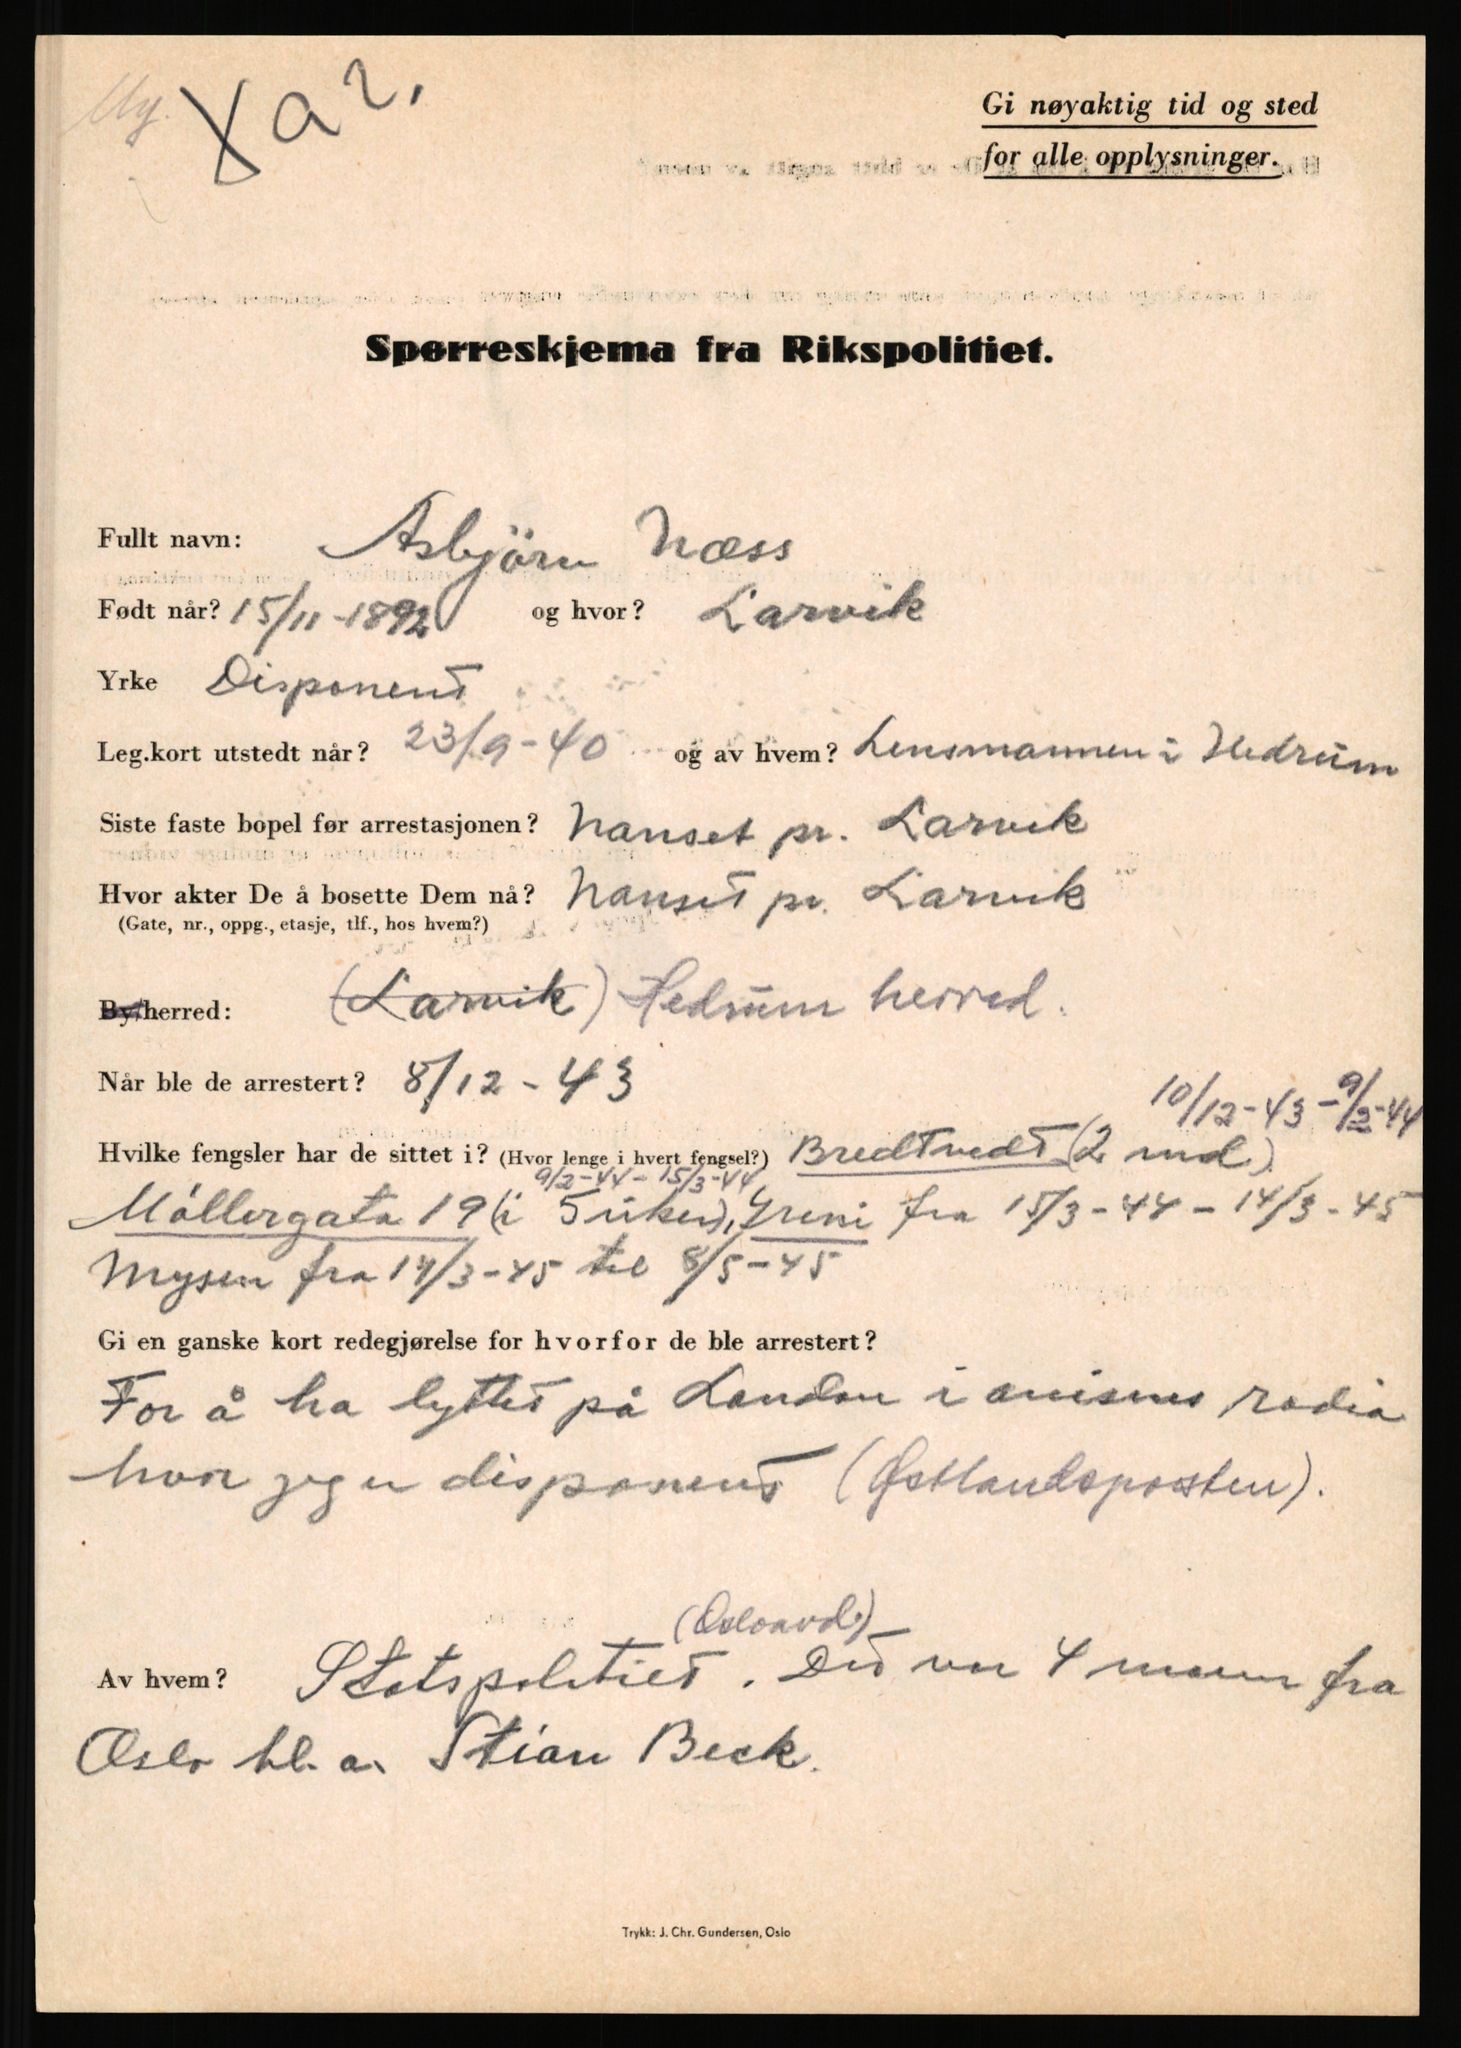 Gi nøyaktig tid og sted
for alle opplysninger.
Spørreskjema fra Rikspolitiet.
Fullt navn: Asbjörn Næss
Født når? 15/11-1892 og hvor? Larvik
Yrke Disponent
Leg.kort utstedt når? 23/9-40 og av hvem? Lensmannen i Hedrum
Siste faste bopel før arrestasjonen? Nanset pr. Larvik
Hvor akter De å bosette Dem nå? Nanset pr. Larvik
(Gate, nr., oppg., etasje, tlf., hos hvem?)
By/herred: (Larvik) Hedrum herred.
Når ble de arrestert? 8/12-43
10/12-43-9/2-44
Hvilke fengsler har de sittet i? (Hvor lenge i hvert fengsel?) Bredtvedt (2 md).
9/2-44-15/3-44
Möllergata 19 (i 5 uker), Greni fra 15/3-44-14/3-45
Mysen fra 14/3-45 til 8/5-45
Gi en ganske kort redegjørelse for hvorfor de ble arrestert?
For å ha lyttet på London i avisens radio
hvor jeg er disponent (Østlandsposten).
(Osloavd.)
Av hvem? Statspolitiet. Det var 4 mann fra
Oslo bl. a. Stian Beck.
Trykk: J. Chr. Gundersen, Oslo